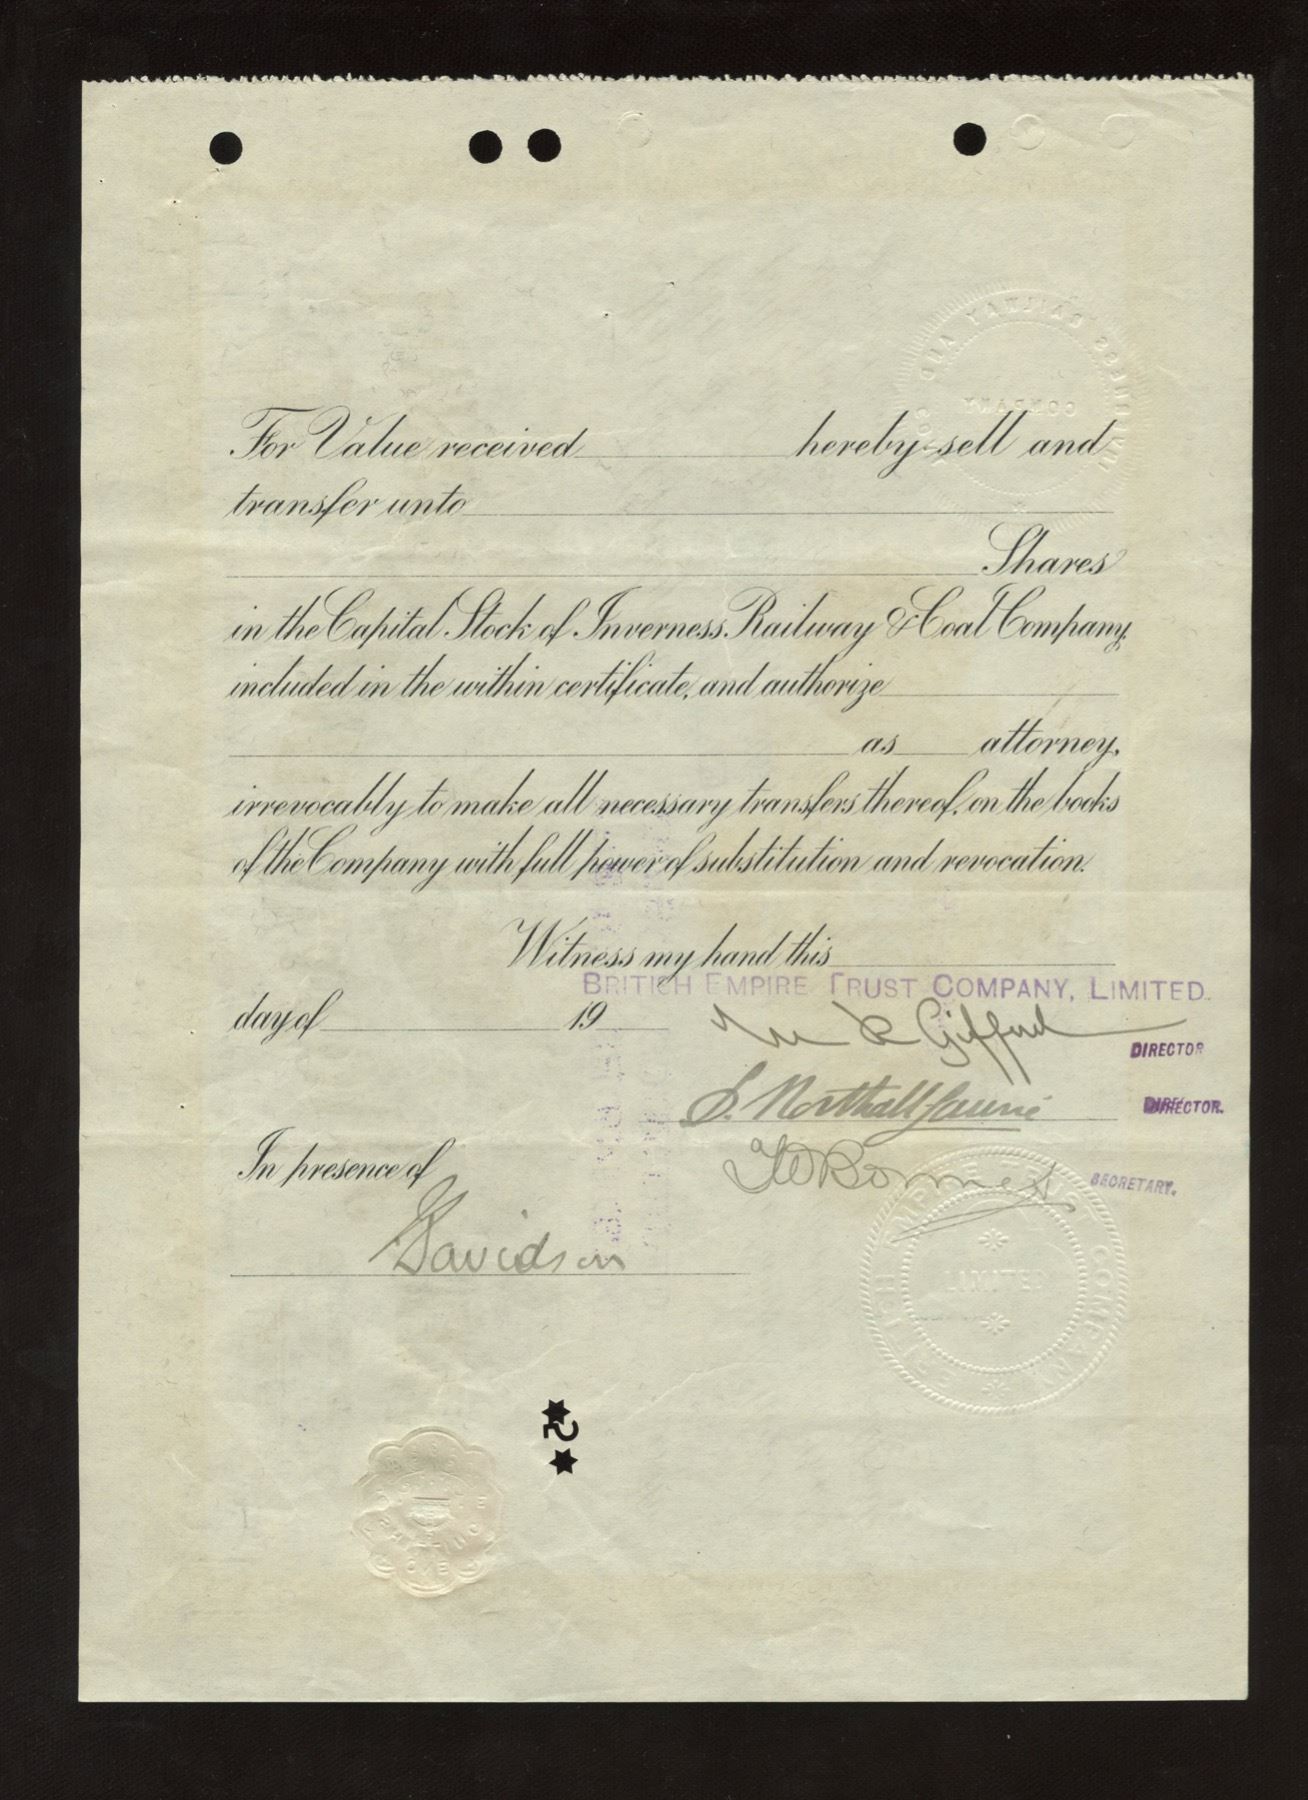 For Value received hereby sell and
transfer unto
Shares
in the Capital Stock of Inverness Railway & Coal Company,
included in the within certificate, and authorize
as attorney,
irrevocably to make all necessary transfers thereof, on the books
of the Company with full power of substitution and revocation.
Witness my hand this
BRITISH EMPIRE TRUST COMPANY, LIMITED.
day of 19
Gifford
DIRECTOR
S. Northall Laurie
DIRECTOR.
In presence of
SECRETARY.
Davidson
COMPANY
LIMITED
*2*